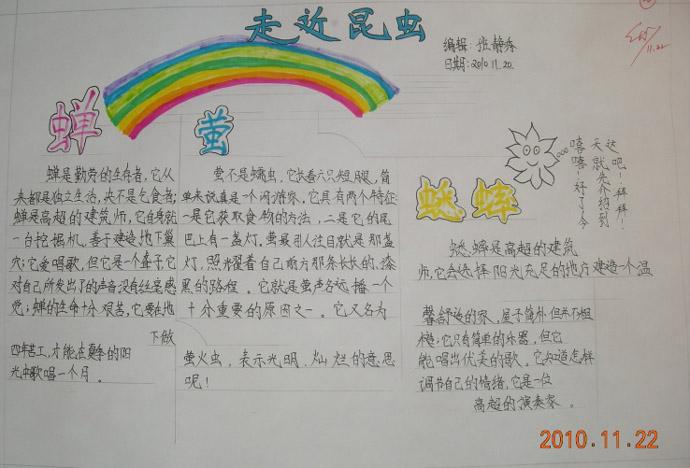 走近昆虫
编辑：张静秀
日期：2010.11.22
11.22
蝉
蝉是勤劳的生存者，它从
来都是独立生活，决不是乞食者；
蝉是高超的建筑师，它自身就
一台挖掘机，善于建造地下巢
穴；它爱唱歌，但它是一个聋子，它
对自己所发出了的声音没有丝毫感
觉；蝉的生命十分艰苦，它要在地
下做
四年苦工，才能在夏季的阳
光中歌唱一个月。
萤
萤不是蠕虫，它长着六只短腿，简
单来说真是一个闲游家，它具有两个特征
一是它获取食物的方法，二是它的尾
巴上有一盏灯，萤最引人注目就是那盏
灯，照耀着自己前方那条长长的、漆
黑的路程。它就是萤声名远播一个
十分重要的原因之一。它又名为
萤火虫，表示光明、灿烂的意思
呢！
嘻嘻！好了，今
天就先介绍到
这吧！拜拜！
蟋蟀
蟋蟀是高超的建筑
师，它会选择阳光充足的地方建造一个温
馨舒适的家，屋子简朴但并不粗
糙；它只有简单的乐器，但它
能唱出优美的歌。它知道怎样
调节自己的情绪，它是一位
高超的演奏家。
2010.11.22